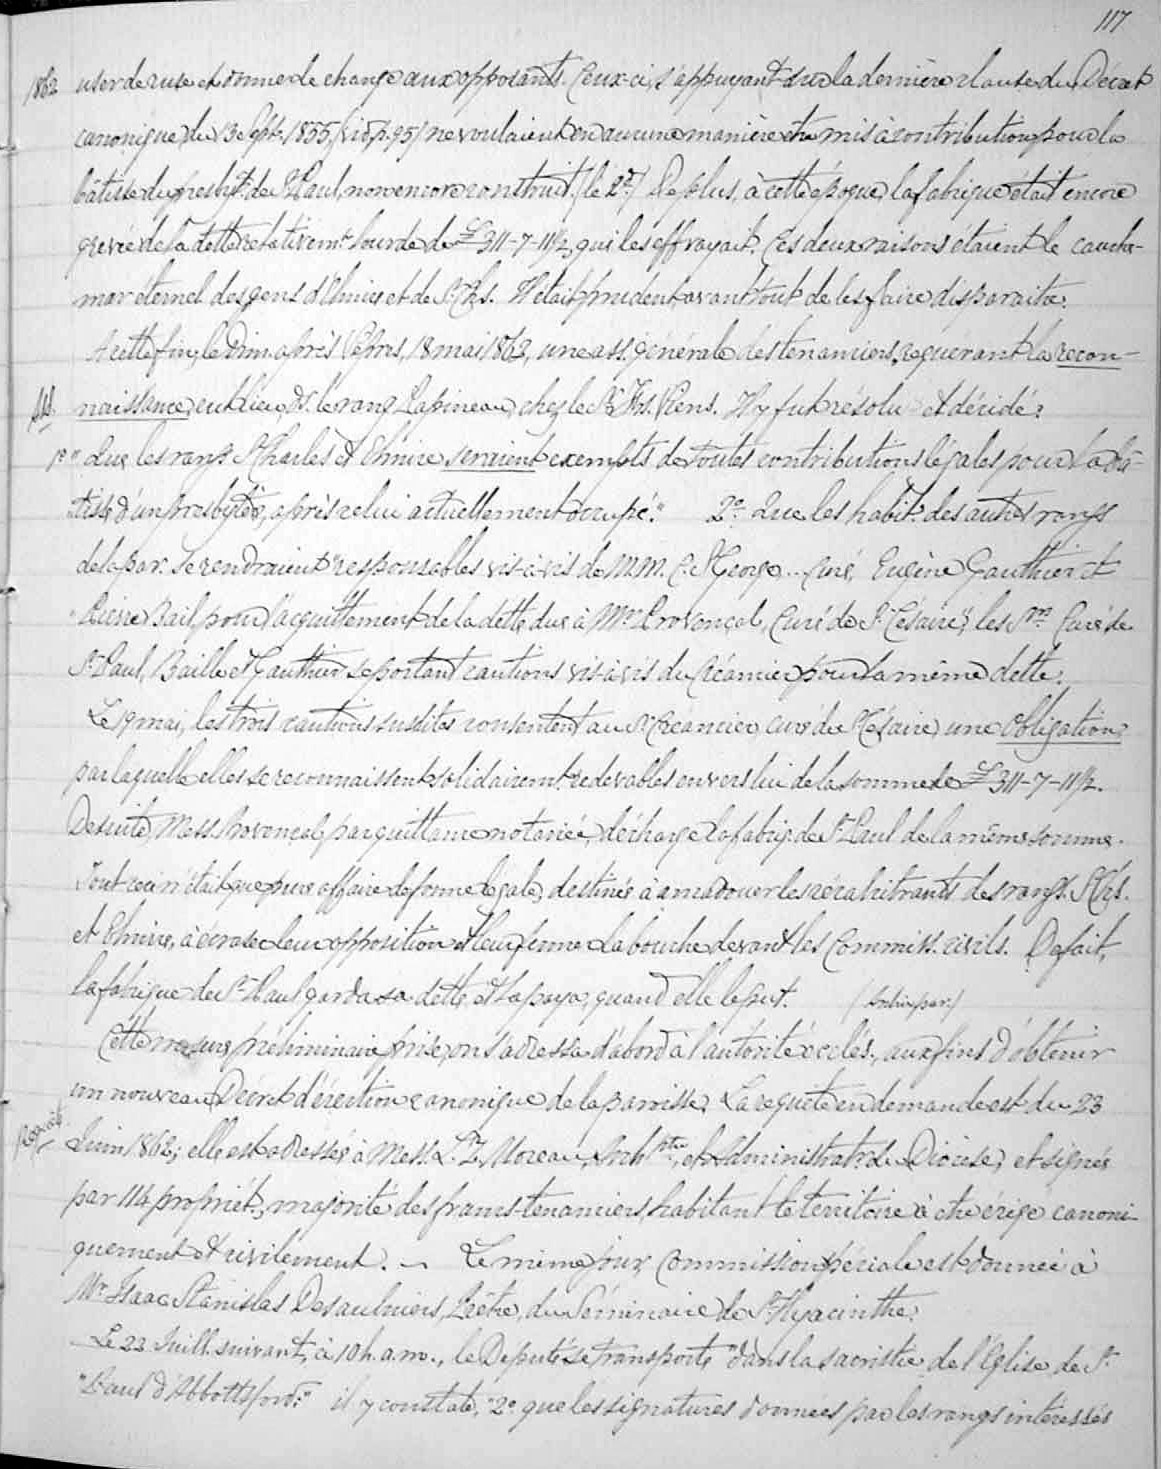 117
1862 user de ruse et donner le change aux opposants. Ceux-ci, s'appuyant sur la dernière clause du Décret
canonique du 13 Sept. 1855, (vid. p. 95) ne voulaient en aucune manière être mis à contribution pour la
bâtisse du presbyt. de St Paul, non encore construit, (le 2d.) De plus, à cette époque, la fabrique était encore
grevée de la dette relativemt lourde de £311-7-11½, qui les effrayait. Ces deux raisons étaient le cauche-
mar éternel des gens d'Elmire et de St. Chs. Il était prudent avant tout de les faire disparaitre.
A cette fin, le Dim. après Vêpres, 18 mai 1862, une ass. générale des tenanciers, requérant la recon-
naissance, eut lieu, ds. le rang Papineau, chez le Sr. Frs. Viens. Il y fut résolu et décidé:
1o " Que les rangs St Charles et Elmire seraient exempts de toutes contributions légales pour la bâ-
tisse d'un presbytère, après celui actuellement occupé." 2o. Que les habit. des autres rangs
de la par. se rendraient "responsables vis-à-vis de M.M. C. St George... curé, Eugène Gauthier et
" Pierre Bail, pour l'acquittement de la dette due à Mr. Provençal, Curé de St. Césaire," les Srs Curé de
St Paul, Baille et Gauthier se portant cautions vis-à-vis du créancier pour la même dette.
Le 19 mai, les trois cautions susdites consentent au Sr. Créancier, curé de St Césaire, une Obligation,
par laquelle elles se reconnaissent solidairemt. redevables envers lui de la somme de £311-7-11½.
De suite, Mess. Provençal, par quittance notariée, décharge la fabriq. de St Paul de la même somme.
Tout ceci n'était que pure affaire de forme légale, destinée à amadouer les récalcitrants des rangs St. Chs.
et Elmire, à écraser leur opposition et leur fermer la bouche devant les Commiss. civils. De fait,
la fabrique de St. Paul garda sa dette, et la paya, quand elle le put. (Archiv. par.)
Cette mesure préliminaire prise, on s'adressa d'abord à l'autorité ecclés., aux fins d'obtenir
un nouveau Décret d'érection canonique de la paroisse. La requête en demande est du 23
Juin 1862; elle est adressée à Mess. L. Z. Moreau, Arch. ptre, et Administrat. du Diocèse, et signée
par 114 propriét., majorité des francs-tenanciers, habitant le territoire à être érigé canoni-
quement et civilement. — Le même jour, Commission spéciale est donnée à
Mr. Isaac Stanislas Desaulniers, Prêtre, du Séminaire de St Hyacinthe.
Le 22 Juill. suivant, à 10 h. a.m., le Député se transporte "dans la sacristie de l'Eglise de St.
"Paul d'Abbottsford:" il y constate, "2o. que les signatures données par les rangs intéressés